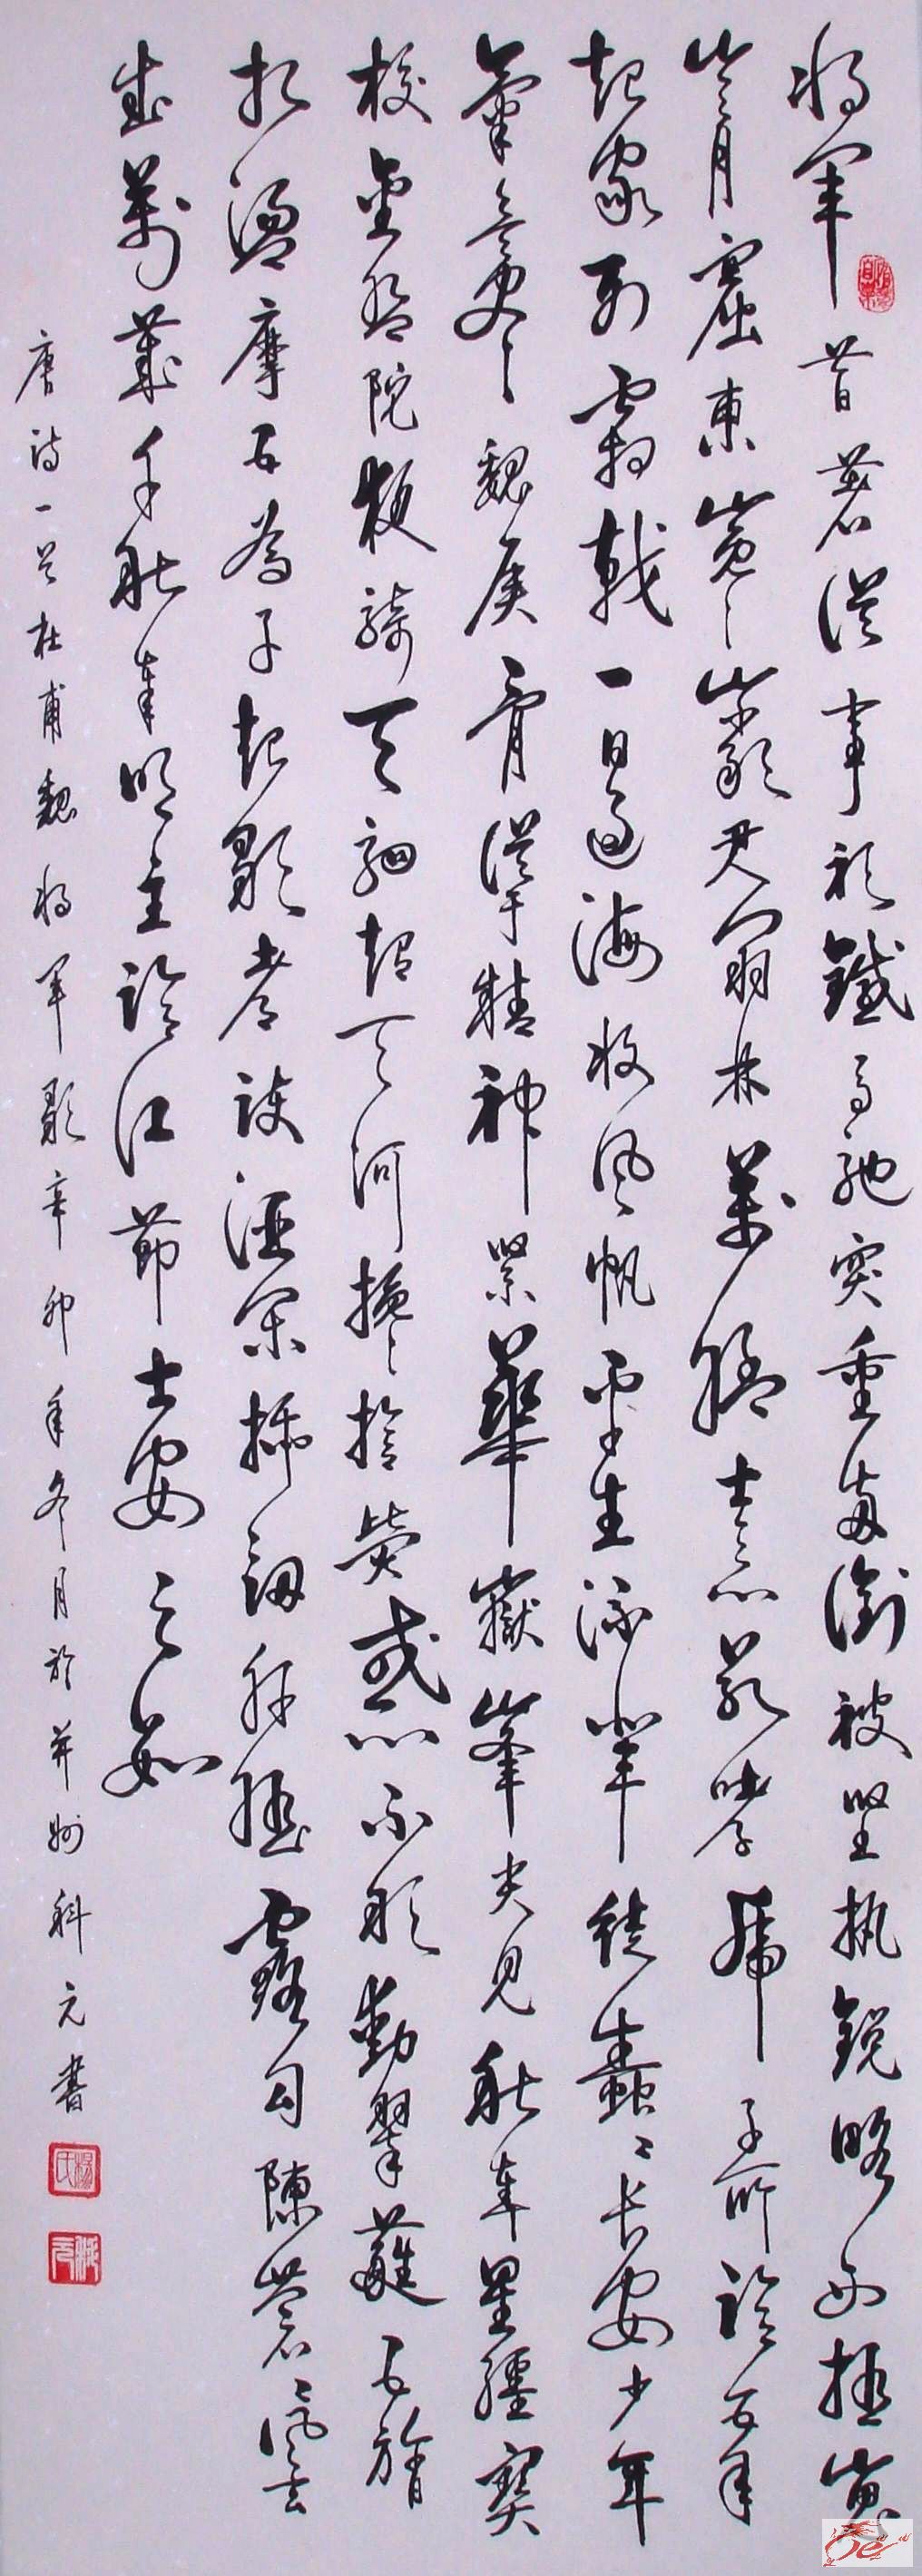 将軍昔著從事衫鐵馬馳突重兩銜被堅執銳略西極崑
崙月窟東嶄巖君門羽林萬猛士惡若哮虎子所監五年
起家列霜戟一日過海收風帆平生流輩徒蠢〻長安少年
氣欲盡魏侯骨聳精神緊華嶽峯尖見秋隼星纏寶
校金盤陀夜騎天駟超天河欃槍熒惑不敢動翠蕤雲旓
相盪摩吾為子起歌都護酒闌插劍肝膽露勾陳蒼〻風玄
武萬歲千秋奉明主臨江節士安足數
唐詩一首杜甫魏将軍歌辛卯年冬月於并州科元書